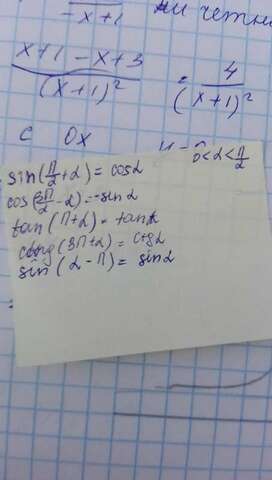 -x+1
ни четн
x+1-x+3
(x+1)²
= 4
(x+1)²
с Ox
0<α<П/2
sin(П/2+α)=cosα
cos(3П/2-α)=-sinα
tan(П+α)=tanα
ctg(3П+α)=ctgα
sin(α-П)=sinα